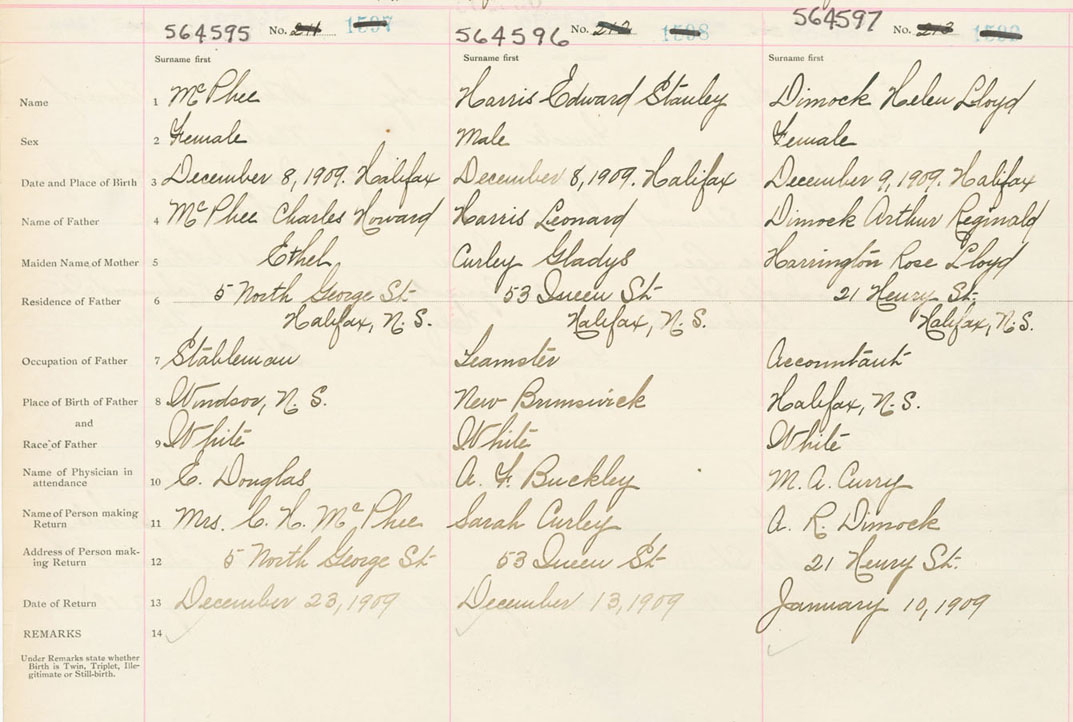 564595 No. 211 1597 564596 No. 212 1598 564597 No. 213 1599
Surname first Surname first Surname first
Name 1 McPhee Harris Edward Stanley Dimock Helen Lloyd
Sex 2 Female Male Female
Date and Place of Birth 3 December 8, 1909. Halifax December 8, 1909. Halifax December 9, 1909. Halifax
Name of Father 4 McPhee Charles Howard Harris Leonard Dimock Arthur Reginald
Maiden Name of Mother 5 Ethel, Curley Gladys Harrington Rose Lloyd
Residence of Father 6 5 North George St. 53 Queen St 21 Henry St.
Halifax, N. S. Halifax, N. S. Halifax, N. S.
Occupation of Father 7 Stableman Teamster Accountant
Place of Birth of Father 8 Windsor, N. S. New Brunswick Halifax, N. S.
and
Race of Father 9 White White White
Name of Physician in
attendance 10 E. Douglas A. F. Buckley M. A. Curry
Name of Person making
Return 11 Mrs. C. H. McPhee Sarah Curley A. R. Dimock
Address of Person mak-
ing Return 12 5 North George St. 53 Queen St 21 Henry St.
Date of Return 13 December 23, 1909 December 13, 1909 January 10, 1909
REMARKS 14
Under Remarks state whether
Birth is Twin, Triplet, Ille-
gitimate or Still-birth.